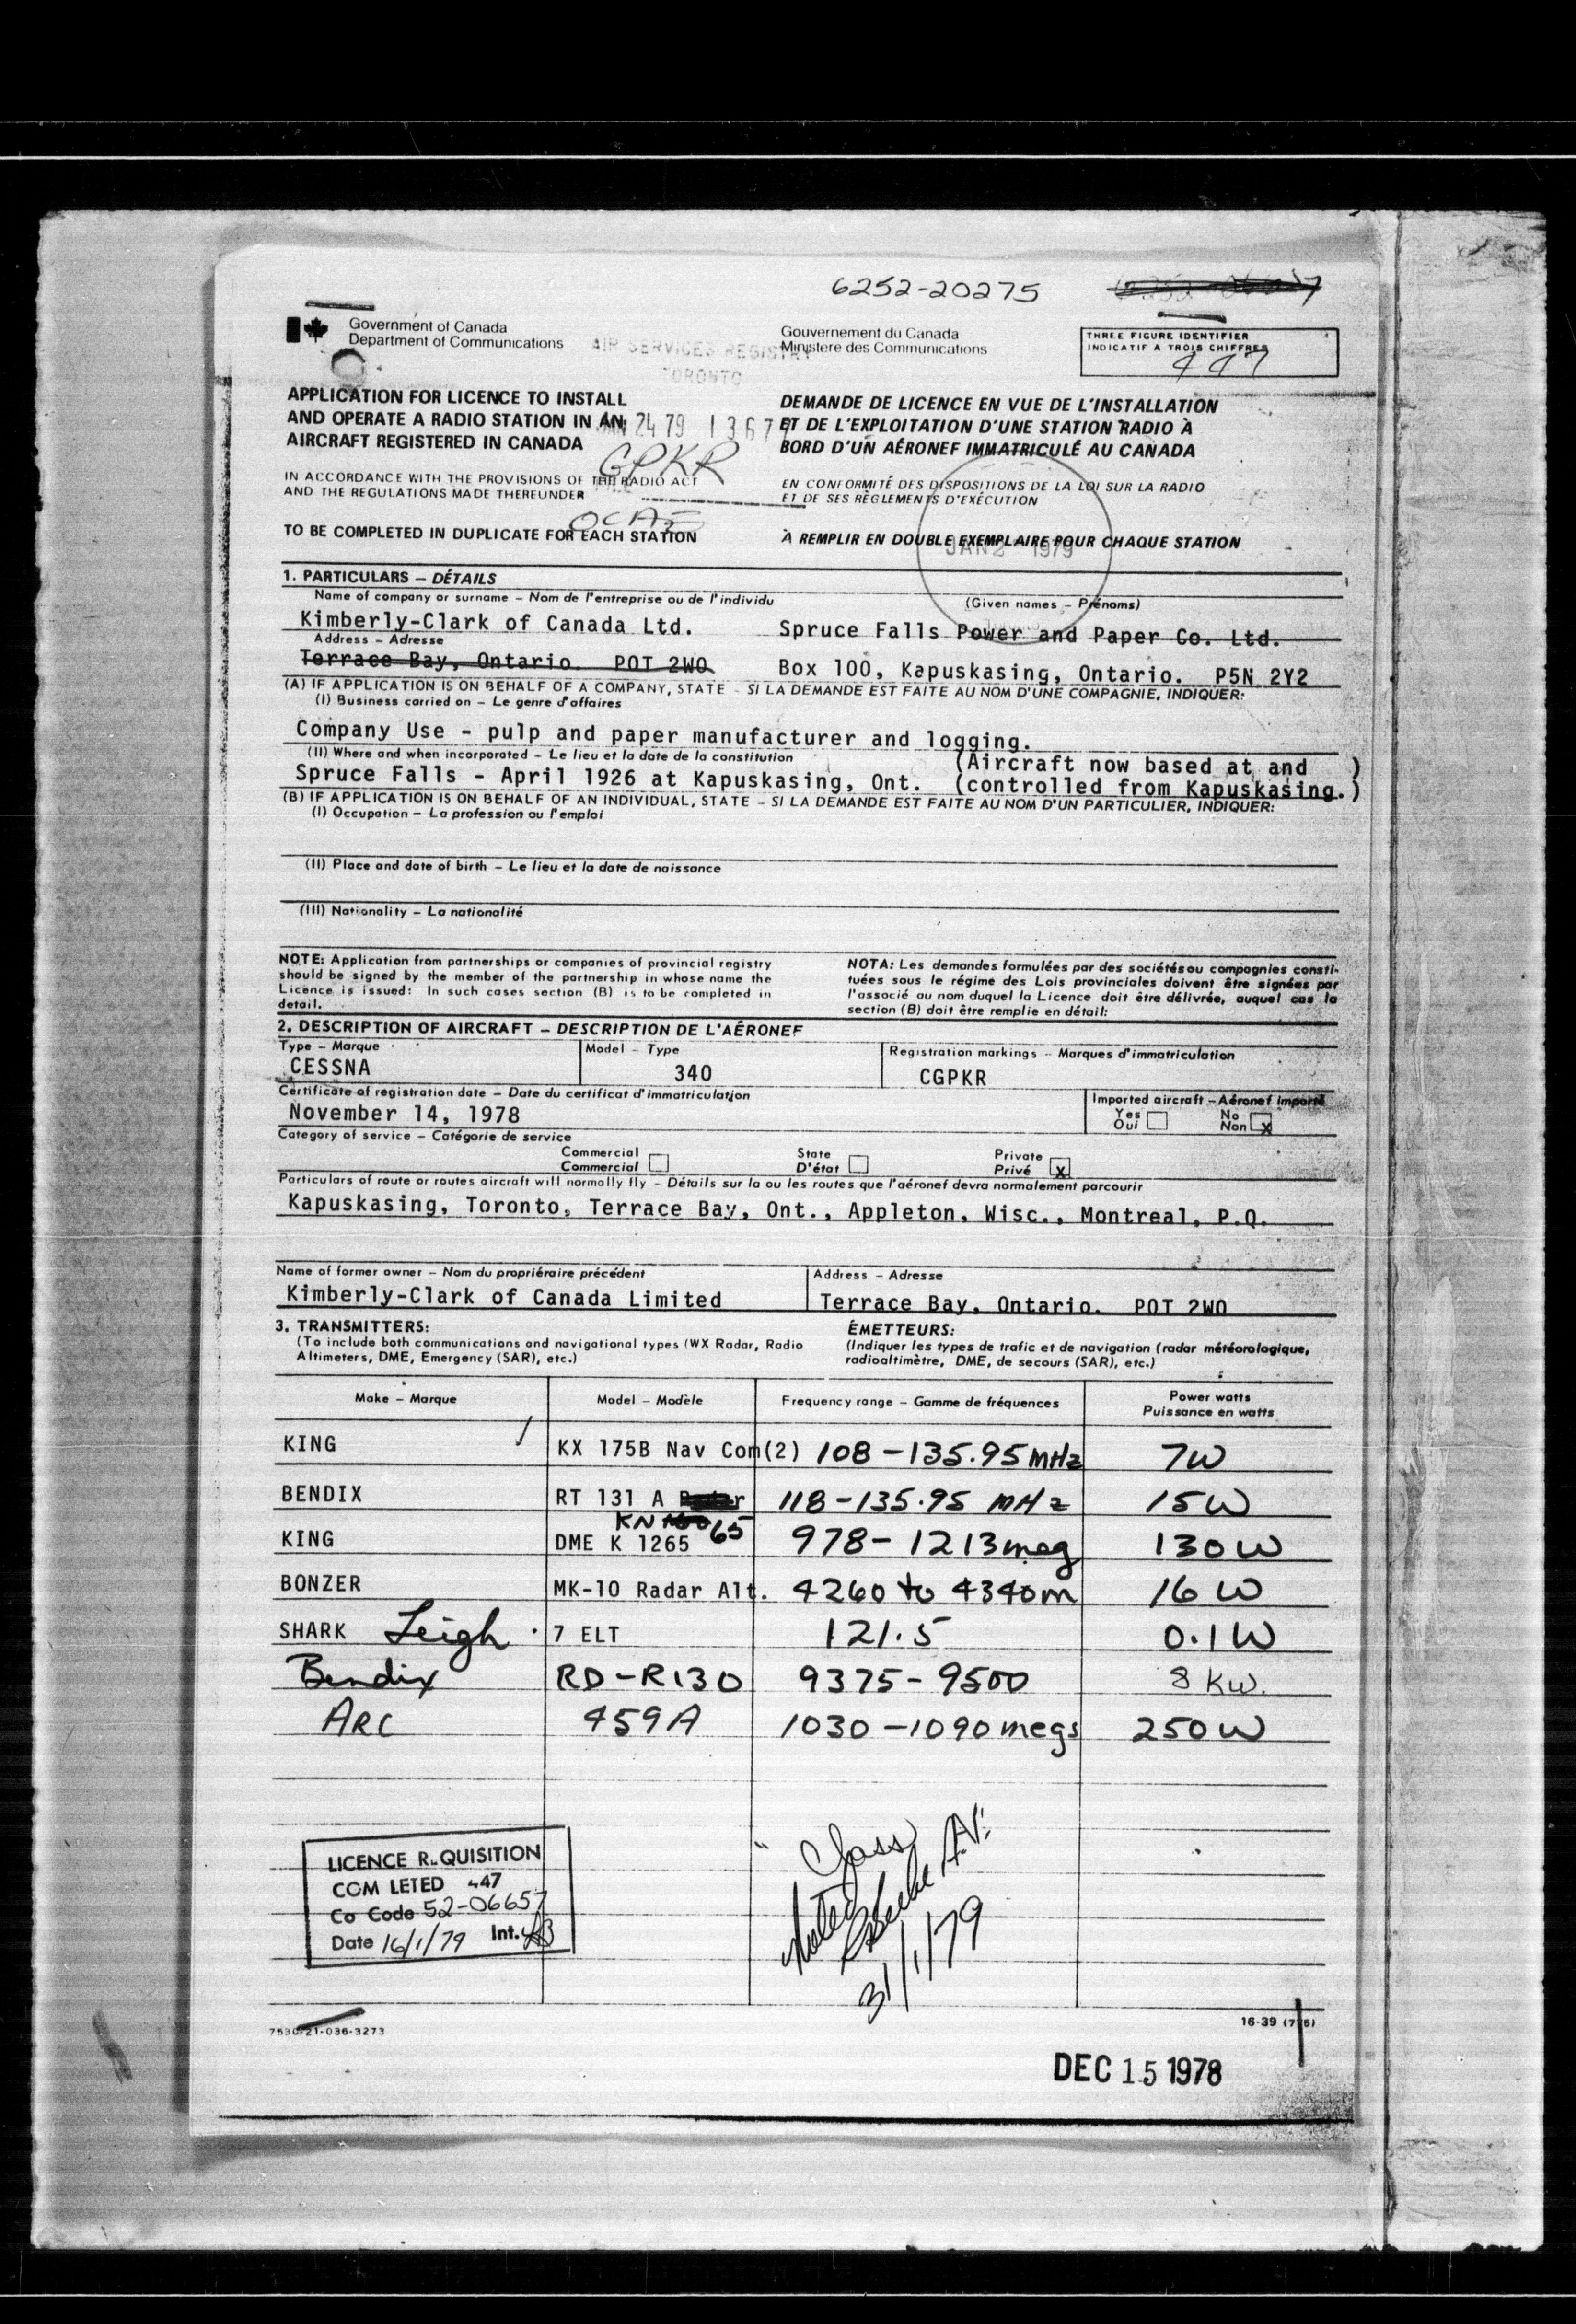 6252-20275
Government of Canada
Department of Communications
Gouvernement du Canada
Ministère des Communications
AIR SERVICES REGISTRY
TORONTO
THREE FIGURE IDENTIFIER
INDICATIF A TROIS CHIFFRES
447
APPLICATION FOR LICENCE TO INSTALL
AND OPERATE A RADIO STATION IN AN
AIRCRAFT REGISTERED IN CANADA
DEMANDE DE LICENCE EN VUE DE L'INSTALLATION
ET DE L'EXPLOITATION D'UNE STATION RADIO À
BORD D'UN AÉRONEF IMMATRICULÉ AU CANADA
JAN 24 79 1367
GPKR
IN ACCORDANCE WITH THE PROVISIONS OF THE RADIO ACT
AND THE REGULATIONS MADE THEREUNDER
EN CONFORMITÉ DES DISPOSITIONS DE LA LOI SUR LA RADIO
ET DE SES RÈGLEMENTS D'EXÉCUTION
TO BE COMPLETED IN DUPLICATE FOR EACH STATION
À REMPLIR EN DOUBLE EXEMPLAIRE POUR CHAQUE STATION
JAN 2 1979
1. PARTICULARS – DÉTAILS
Name of company or surname – Nom de l'entreprise ou de l'individu
(Given names – Prénoms)
Kimberly-Clark of Canada Ltd. Spruce Falls Power and Paper Co. Ltd.
Address – Adresse
Terrace Bay, Ontario. POT 2WO Box 100, Kapuskasing, Ontario. P5N 2Y2
(A) IF APPLICATION IS ON BEHALF OF A COMPANY, STATE – SI LA DEMANDE EST FAITE AU NOM D'UNE COMPAGNIE, INDIQUER:
(I) Business carried on – Le genre d'affaires
Company Use - pulp and paper manufacturer and logging.
(II) Where and when incorporated – Le lieu et la date de la constitution
(Aircraft now based at and )
Spruce Falls - April 1926 at Kapuskasing, Ont. (controlled from Kapuskasing.)
(B) IF APPLICATION IS ON BEHALF OF AN INDIVIDUAL, STATE – SI LA DEMANDE EST FAITE AU NOM D'UN PARTICULIER, INDIQUER:
(I) Occupation – La profession ou l'emploi
(II) Place and date of birth – Le lieu et la date de naissance
(III) Nationality – La nationalité
NOTE: Application from partnerships or companies of provincial registry
should be signed by the member of the partnership in whose name the
Licence is issued: In such cases section (B) is to be completed in
detail.
NOTA: Les demandes formulées par des sociétés ou compagnies consti-
tuées sous le régime des Lois provinciales doivent être signées par
l'associé au nom duquel la Licence doit être délivrée, auquel cas la
section (B) doit être remplie en détail:
2. DESCRIPTION OF AIRCRAFT – DESCRIPTION DE L'AÉRONEF
Type – Marque Model – Type Registration markings – Marques d'immatriculation
CESSNA 340 CGPKR
Certificate of registration date – Date du certificat d'immatriculation
November 14, 1978
Imported aircraft – Aéronef importé
Yes No
Oui Non X
Category of service – Catégorie de service
Commercial State Private
Commercial D'état Privé X
Particulars of route or routes aircraft will normally fly – Détails sur la ou les routes que l'aéronef devra normalement parcourir
Kapuskasing, Toronto, Terrace Bay, Ont., Appleton, Wisc., Montreal, P.Q.
Name of former owner – Nom du propriéraire précédent Address – Adresse
Kimberly-Clark of Canada Limited Terrace Bay, Ontario. POT 2WO
3. TRANSMITTERS:
(To include both communications and navigational types (WX Radar, Radio
Altimeters, DME, Emergency (SAR), etc.)
ÉMETTEURS:
(Indiquer les types de trafic et de navigation (radar météorologique,
radioaltimètre, DME, de secours (SAR), etc.)
Make – Marque Model – Modèle Frequency range – Gamme de fréquences Power watts
Puissance en watts
KING KX 175B Nav Com(2) 108-135.95 mHz 7W
BENDIX RT 131 A 118-135.95 mHz 15W
KN 65
KING DME K 1265 978-1213 meg 130 W
BONZER MK-10 Radar Alt. 4260 to 4340m 16 W
SHARK Leigh 7 ELT 121.5 0.1 W
Bendix RD-R130 9375-9500 8 Kw.
ARC 459A 1030-1090 megs 250 W
LICENCE R QUISITION
COM LETED 447
Co Code 52-06657
Date 16/1/79 Int.
Class
Noted
31/1/79
7530-21-036-3273
16-39 (7-75)
DEC 15 1978